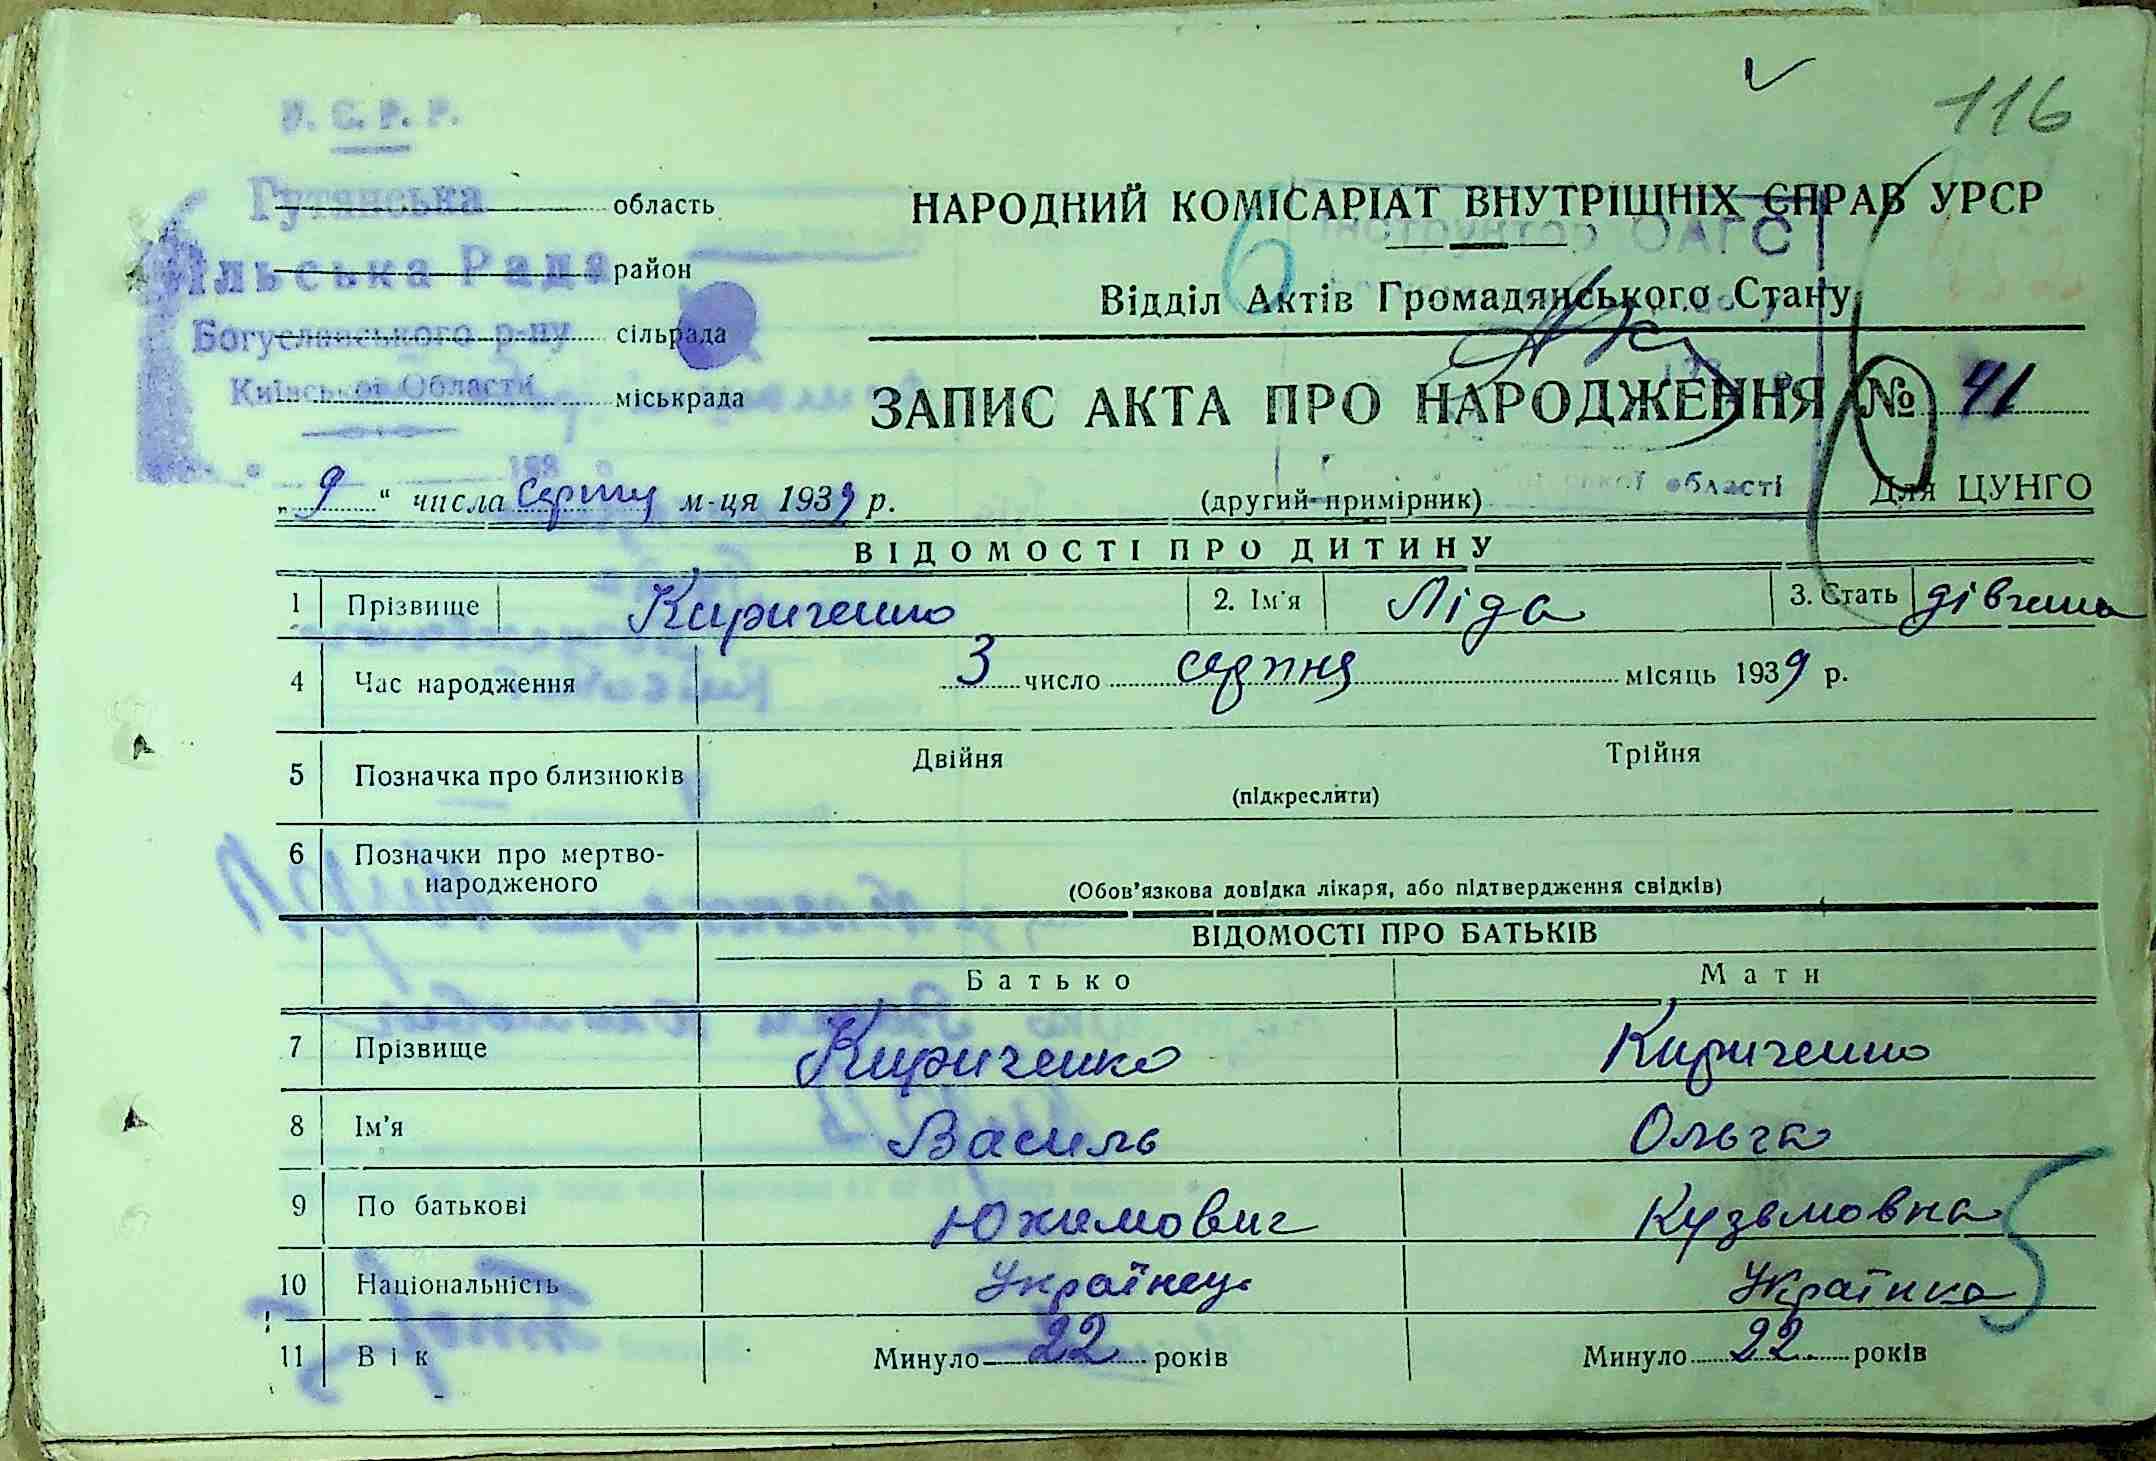 У. С. Р. Р.
116
Гутянська область
Сільська Рада район
Богуславського р-ну сільрада
Київської Області міськрада
НАРОДНИЙ КОМІСАРІАТ ВНУТРІШНІХ СПРАВ УРСР
Інструктор ОАГС
6
Відділ Актів Громадянського Стану
ЗАПИС АКТА ПРО НАРОДЖЕННЯ № 41
„ 9 “ числа Серпня м-ця 1939 р.
(другий примірник)
області
Для ЦУНГО
ВІДОМОСТІ ПРО ДИТИНУ
1 Прізвище Кириченко 2. Ім'я Ліда 3. Стать дівчина
4 Час народження 3 число серпня місяць 1939 р.
5 Позначка про близнюків Двійня Трійня
(підкреслити)
6 Позначки про мертво-
народженого
(Обов'язкова довідка лікаря, або підтвердження свідків)
ВІДОМОСТІ ПРО БАТЬКІВ
Батько Мати
7 Прізвище Кириченко Кириченко
8 Ім'я Василь Ольга
9 По батькові Юхимович Кузьмовна
10 Національність Українець Українка
11 Вік Минуло 22 років Минуло 22 років